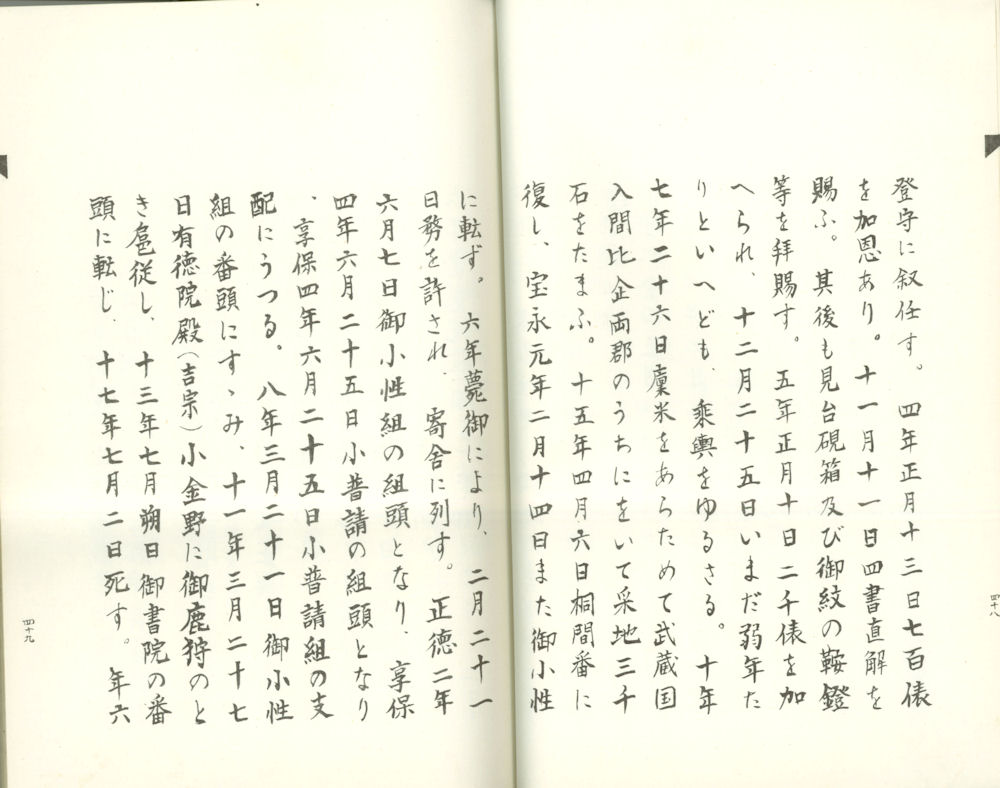 登守に叙任す。四年正月十三日七百俵
を加恩あり。十一月十一日四書直解を
賜ふ。其後も見台硯箱及び御紋の鞍鐙
等を拝賜す。五年正月十日二千俵を加
へられ、十二月二十五日いまだ弱年た
りといへども、乗輿をゆるさる。十年
七年二十六日廩米をあらためて武蔵国
入間比企両郡のうちにをいて采地三千
石をたまふ。十五年四月六日桐間番に
復し、宝永元年二月十四日また御小性
四十八
に転ず。六年薨御により、二月二十一
日務を許され、寄合に列す。正徳二年
六月七日御小性組の組頭となり、享保
四年六月二十五日小普請の組頭となり
、享保四年六月二十五日小普請組の支
配にうつる。八年三月二十一日御小性
組の番頭にすゝみ、十一年三月二十七
日有徳院殿(吉宗)小金野に御鹿狩のと
き扈従し、十三年七月朔日御書院の番
頭に転じ、十七年七月二日死す。年六
四十九